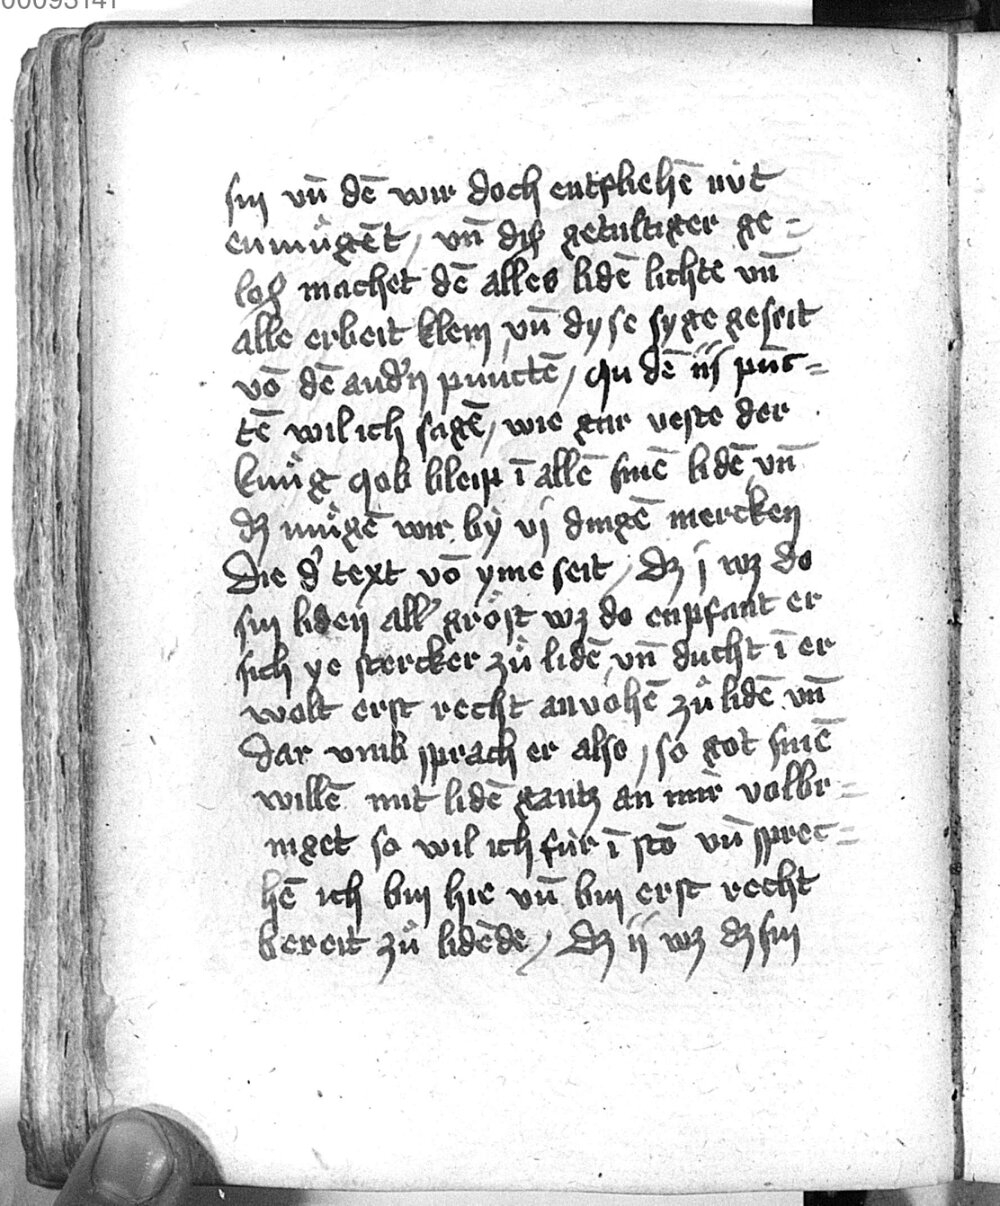 00093141
sin vn̄ dē wir doch entpliehē nüt
enmu̍gēt / vn̄ diß getultiger ge =
loß machet dē alles lidē lichte vn̄
alle erbeit klein / vn̄ dyse syge geseit
vō dē andˀn punctē / Qu dē iij pūc =
tē wil ich sagē / wie gar veste der
kunig Job bleip ī allē sinē lidē vn̄
dʒ mu̍gē wir bÿ vj dingē mercken
Die dˀ text vō yme seit / Dʒ j wʒ do
sin liden allˀ gröst wʒ do enpfant er
sich ye stercker zů lidē vn̄ ducht ī er
wolt erst recht anvohē zů lidē vn̄
Dar vmb sprach er also / so got sinē
willē mit lidē gantz an mir volbr =
inget so wil ich für ī stō vn̄ sprec =
hē ich bin hie vn̄ bin erst recht
bereit zů lidēde / Dʒ ij wʒ dʒ sin